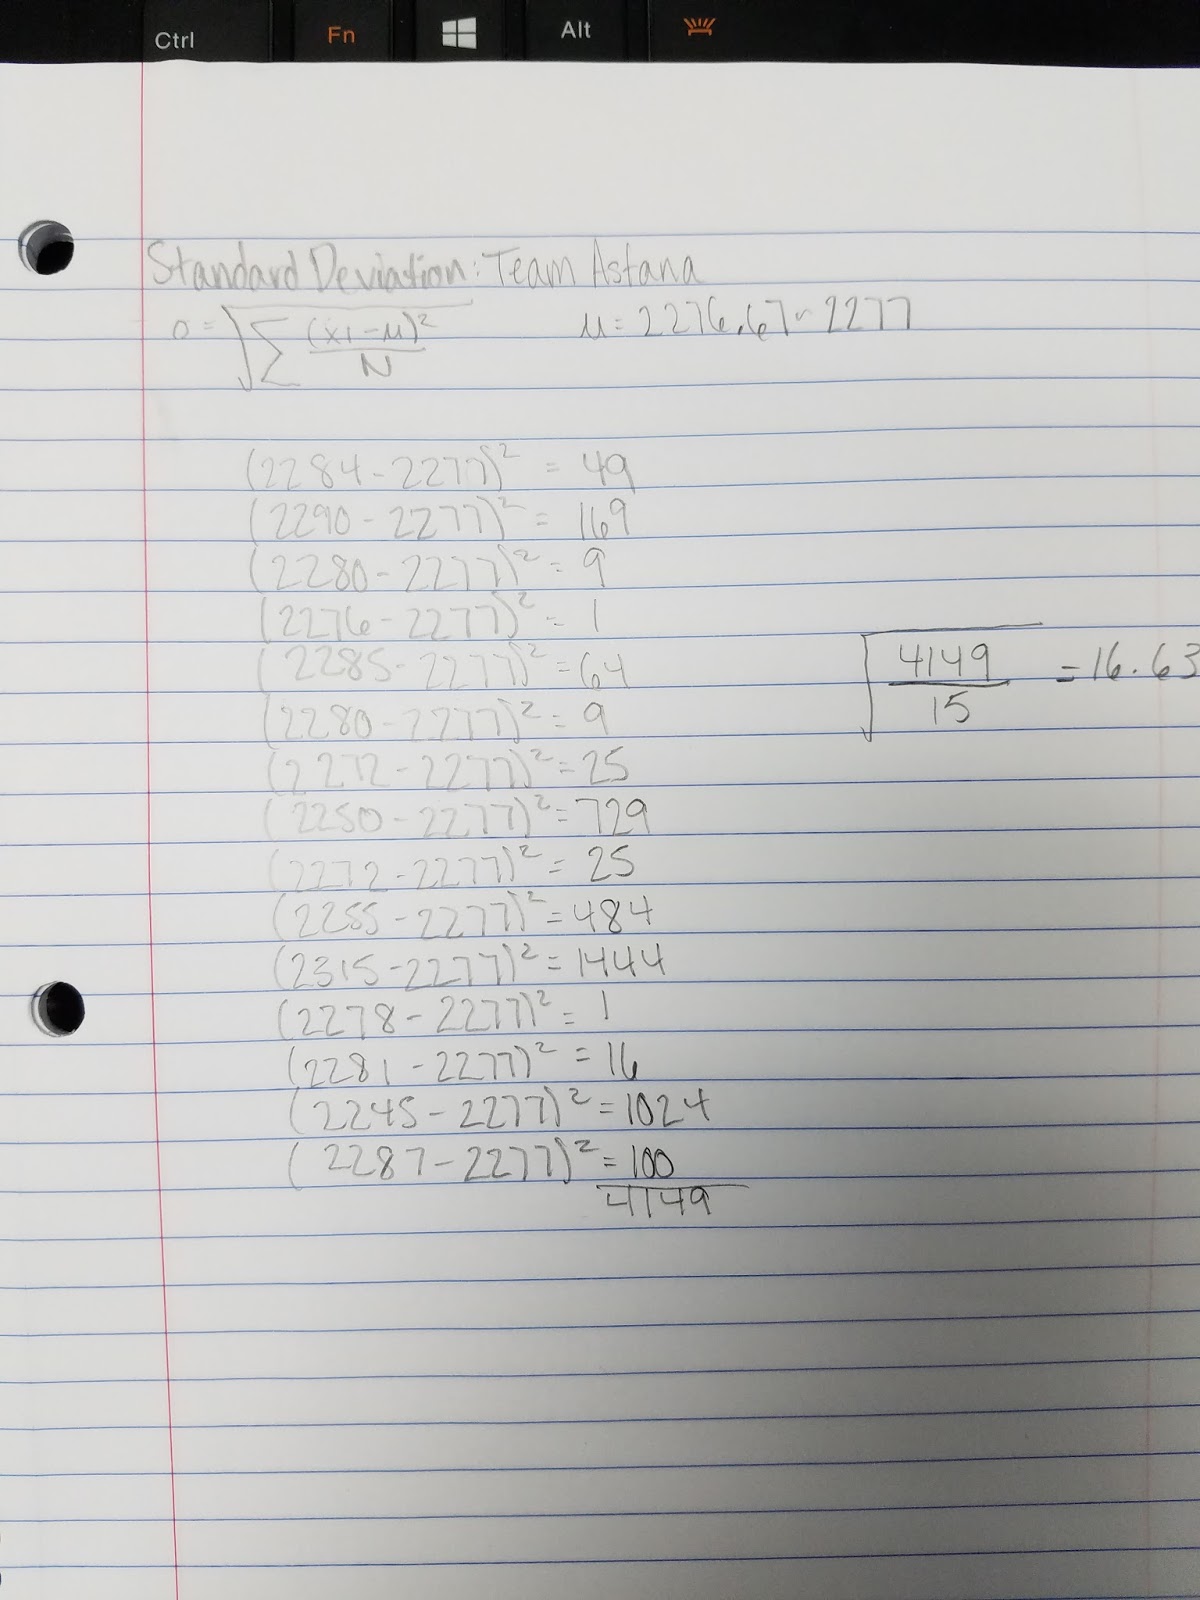 Ctrl Fn Alt
Standard Deviation: Team Astana
σ = √∑ (xi - μ)² / N    μ = 2276.67 ~ 2277
(2284 - 2277)² = 49
(2290 - 2277)² = 169
(2280 - 2277)² = 9
(2276 - 2277)² = 1
(2285 - 2277)² = 64
√4149 / 15 = 16.63
(2280 - 2277)² = 9
(2272 - 2277)² = 25
(2250 - 2277)² = 729
(2272 - 2277)² = 25
(2255 - 2277)² = 484
(2315 - 2277)² = 1444
(2278 - 2277)² = 1
(2281 - 2277)² = 16
(2245 - 2277)² = 1024
(2287 - 2277)² = 100
4149